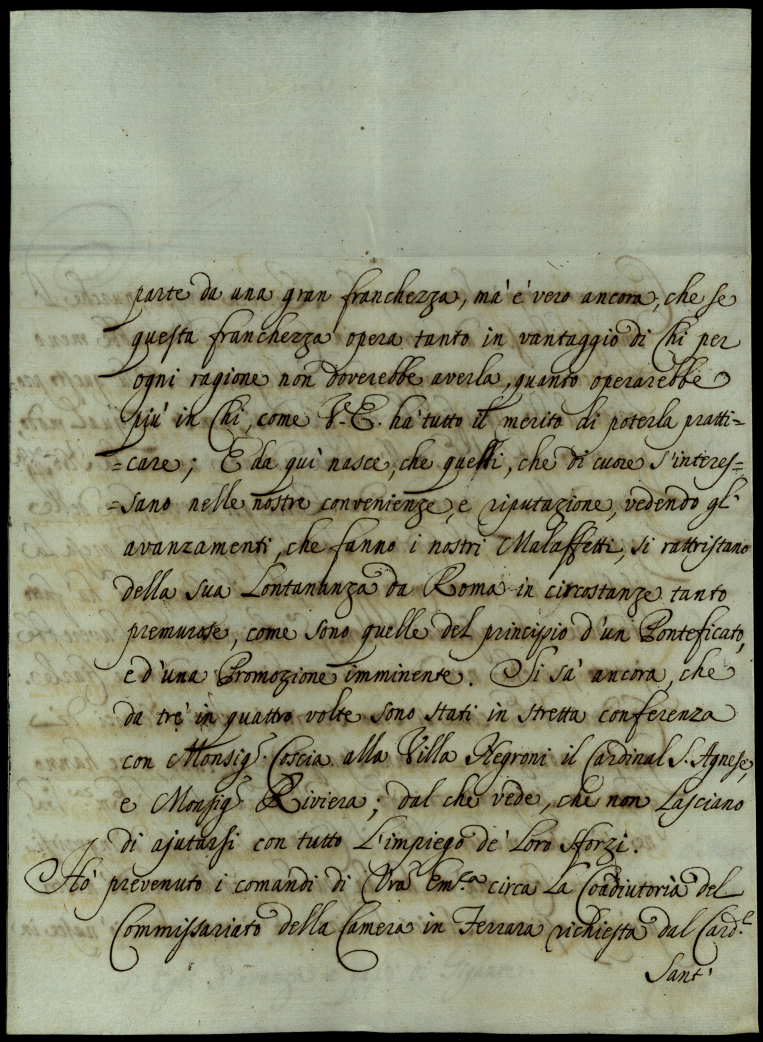 parte da una gran franchezza, mà è vero ancora, che se
questa franchezza opera tanto in vantaggio di Chi per
ogni ragione non doverebbe averla, quanto operarebbe
più in Chi, come V. E. hà tutto il merito di poterla pratti=
=care; E da quì nasce, che quelli, che di cuore s'interes=
=sano nelle nostre convenienze, e riputazione, vedendo gl'
avanzamenti, che fanno i nostri Malaffetti, si rattristano
della sua Lontananza da Roma in circostanze tanto
premurose, come sono quelle del principio d'un Ponteficato,
e d'una Promozione imminente. Si sà ancora, che
da trè in quattro volte sono stati in stretta conferenza
con Monsig.r Coscia alla Villa Negroni il Cardinal S. Agnese,
e Monsig.r Riviera; dal che vede, che non Lasciano
di ajutarsi con tutto L'impiego de' Loro sforzi.
Hò prevenuto i comandi di Vra Em.za circa La Coadiutoria del
Commissariato della Camera in Ferrara richiesta dal Card.e
Sant'